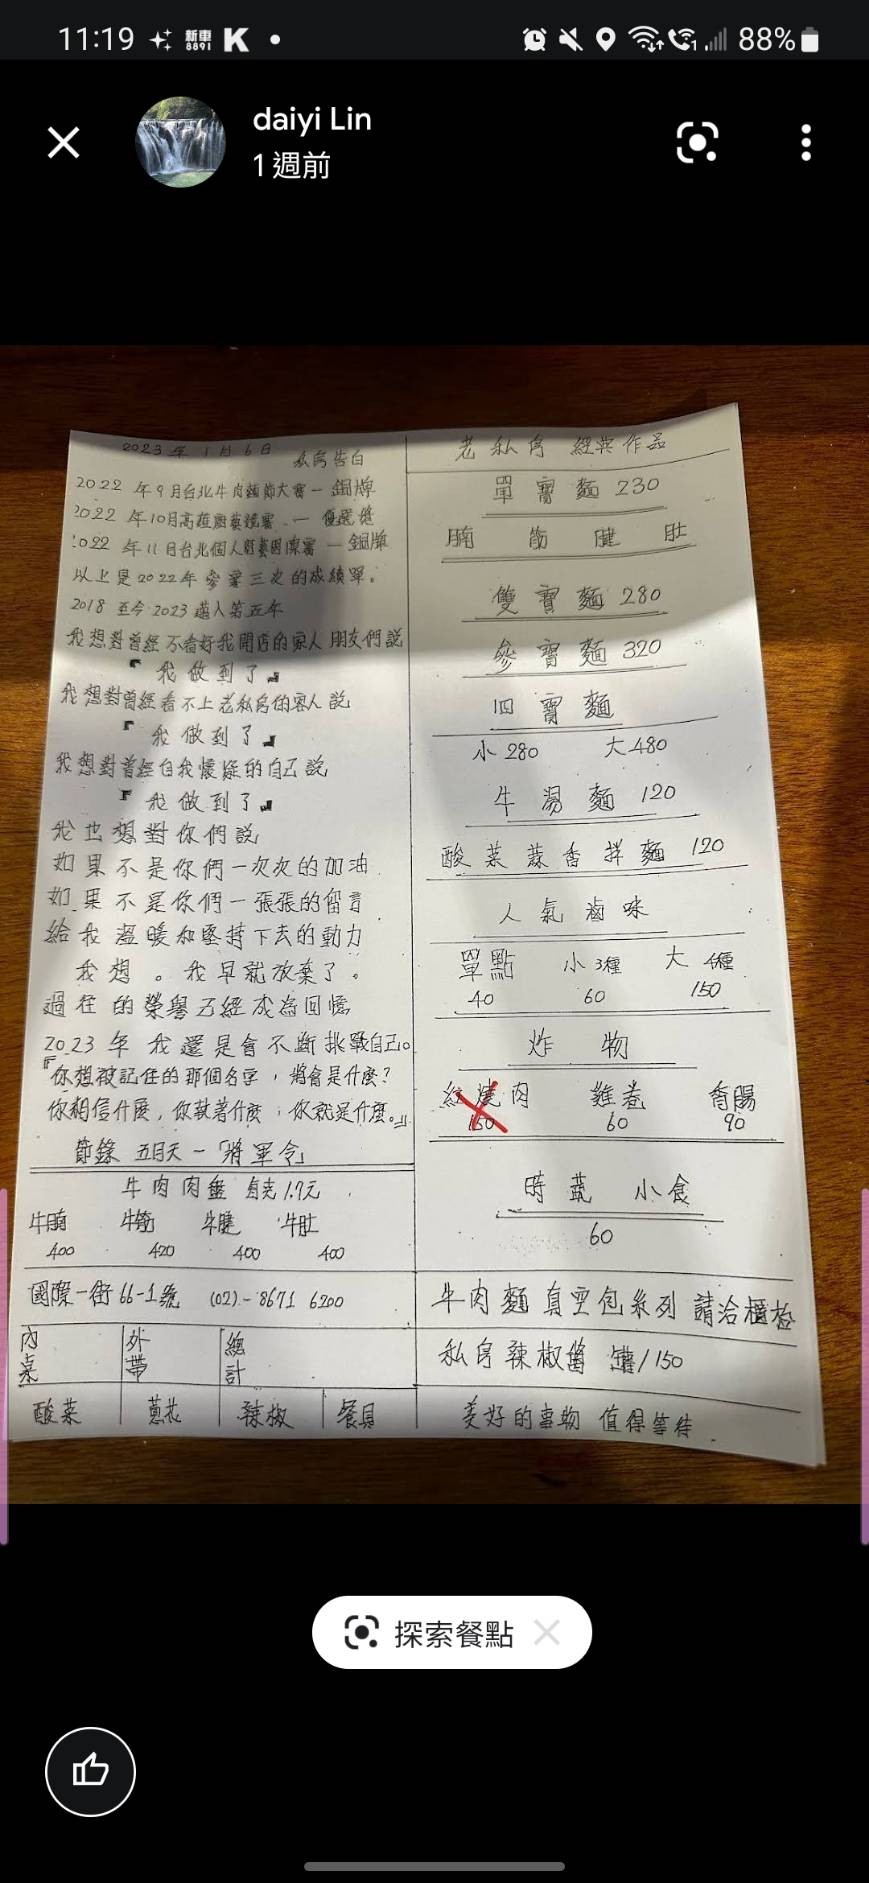 11:19 新車 8891 K 88%
daiyi Lin
1 週前
2023年1月6日 私房告白
2022 年9月台北牛肉麵節大賽 — 銅牌
2022 年10月高雄廚藝競賽 — 優選獎
2022 年11月台北個人廚藝困際賽 — 銅牌
以上是2022年參賽三次的成績單。
2018 至今2023邁入第五年
我想對曾經不看好我開店的家人朋友們說
『我做到了』
我想對曾經看不上老私房的客人說
『我做到了』
我想對曾經自我懷疑的自己說
『我做到了』
我也想對你們說
如果不是你們一次次的加油
如果不是你們一張張的留言
給我溫暖和堅持下去的動力
我想。我早就放棄了。
過往的榮譽已經成為回憶
2023年我還是會不斷挑戰自己。
『你想被記住的那個名字，將會是什麼？
你相信什麼，你執著什麼；你就是什麼。』
節錄 五月天 —「將軍令」
牛肉肉盤 每克1.7元
牛腩 牛筋 牛腱 牛肚
400 420 400 400
國際一街66-1號 (02)-8671 6200
內桌 外帶 總計
酸菜 蔥花 辣椒 餐具
老私房 經典作品
單寶麵 230
腩 筋 腱 肚
雙寶麵 280
參寶麵 320
四寶麵
小 280 大 480
牛湯麵 120
酸菜蒜香拌麵 120
人氣滷味
單點 小3種 大
40 60 150
炸物
紅燒肉 雞卷 香腸
150 60 90
時蔬 小食
60
牛肉麵真空包系列 請洽櫃檯
私房辣椒醬 罐/150
美好的事物 值得等待
探索餐點